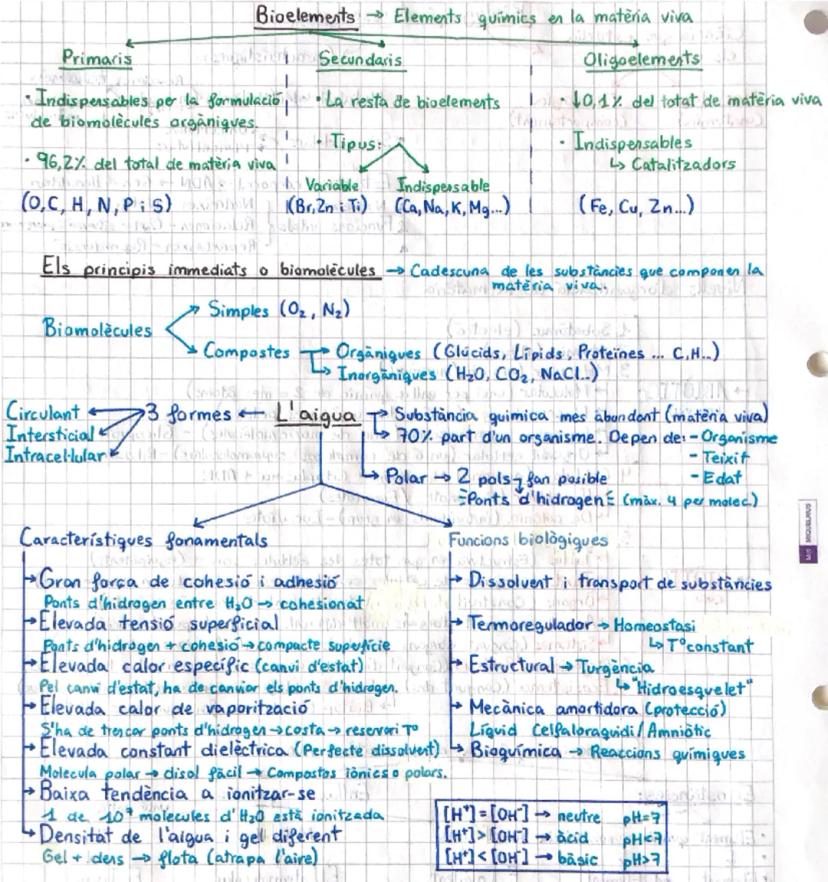 Bioelements → Elements químics en la matèria viva
Primaris
· Indispensables per la formulació
de biomolècules orgàniques.
· 96,2% del total de matèria viva
(O, C, H, N, P i S)
Secundaris
· La resta de bioelements
· Tipus:
Variable
(Br, Zn i Ti)
Indispensable
(Ca, Na, K, Mg...)
Oligoelements
· ↓0,1% del totat de matèria viva
· Indispensables
↳ Catalitzadors
(Fe, Cu, Zn...)
Els principis immediats o biomolècules → Cadescuna de les substàncies que componen la
matèria viva.
Biomolècules
Simples (O₂, N₂)
Compostes
Orgàniques (Glúcids, Lípids, Proteïnes ... C,H..)
Inorgàniques (H₂O, CO₂, NaCl..)
Circulant
Intersticial
Intracel·lular
3 formes ← L'aigua
Substància quimica mes abundant (matèria viva)
70% part d'un organisme. Depen de: - Organisme
- Teixit
- Edat
Polar → 2 pols → fan posible
Ponts d'hidrogen (màx. 4 per molec.)
Característiques fonamentals
→ Gran força de cohesió i adhesió
Ponts d'hidrogen entre H₂O → cohesionat
→ Elevada tensió superficial
Ponts d'hidrogen + cohesió → compacte superfície
→ Elevada calor específic (canvi d'estat)
Pel canvi d'estat, ha de canvior els ponts d'hidrogen.
→ Elevada calor de vaporització
S'ha de trencar ponts d'hidrogen → costa → reservori Tº
→ Elevada constant dielèctrica (Perfecte dissolvent)
Molecula polar → disol fàcil → Compostos iònics o polars.
→ Baixa tendència a ionitzar-se
1 de 10⁷ molecules d'H₂O està ionitzada
→ Densitat de l'aigua i gel diferent
Gel + dens → flota (atrapa l'aire)
Funcions biològiques
→ Dissolvent i transport de substàncies
→ Termoregulador → Homeostasi
↳ Tº constant
→ Estructural → Turgència
↳ "Hidroesquelet"
→ Mecànica amortidora (protecció)
Líquid Cefaloraquidi / Amniòtic
→ Bioquímica → Reaccions químiques
[H⁺] = [OH⁻] → neutre pH=7
[H⁺] > [OH⁻] → àcid pH<7
[H⁺] < [OH⁻] → bàsic pH>7
MIQUELRIUS